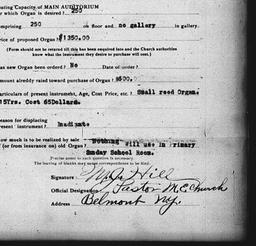 Seating Capacity of MAIN AUDITORIUM
for which Organ is desired? 250
comprising 250 on floor and no gallery in gallery.
Price of proposed Organ? $1350.00
(Form should not be returned till this has been required into and the Church authorities
know what the instrument they desire to purchase will cost.)
Has new Organ been ordered? No Date of order?
Amount already raised toward purchase of Organ? $600.
Particulars of present instrument, Age, Cost Price, etc.? Small reed Organ.
15Yrs. Cost 65Dollard.
Reason for displacing
present instrument? Inadiqate
How much is to be realized by sale
(or from insurance on) old Organ? Nothing Will use in Primary
Sunday School Room.
Precise answer to each question is necessary.
The leaving of blanks may cause correspondence to be filed.
Signature Hill
Official Designation Pastor M.E. Church
Address Belmont N.Y.